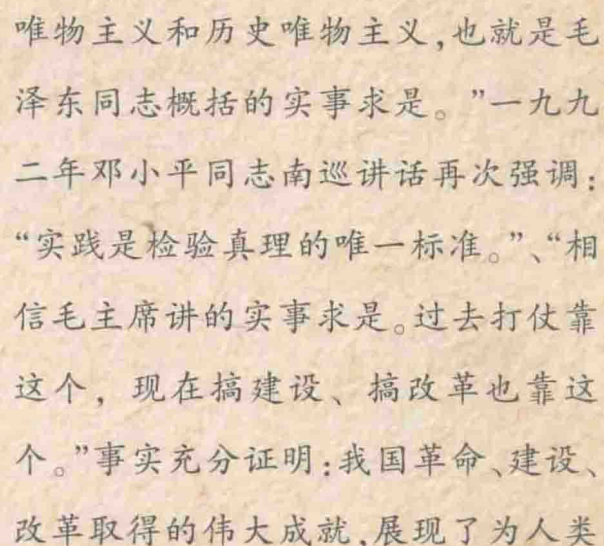 唯物主义和历史唯物主义,也就是毛
泽东同志概括的实事求是。”一九九
二年邓小平同志南巡讲话再次强调:
“实践是检验真理的唯一标准。”、“相
信毛主席讲的实事求是。过去打仗靠
这个，现在搞建设、搞改革也靠这
个。”事实充分证明:我国革命、建设、
改革取得的伟大成就,展现了为人类